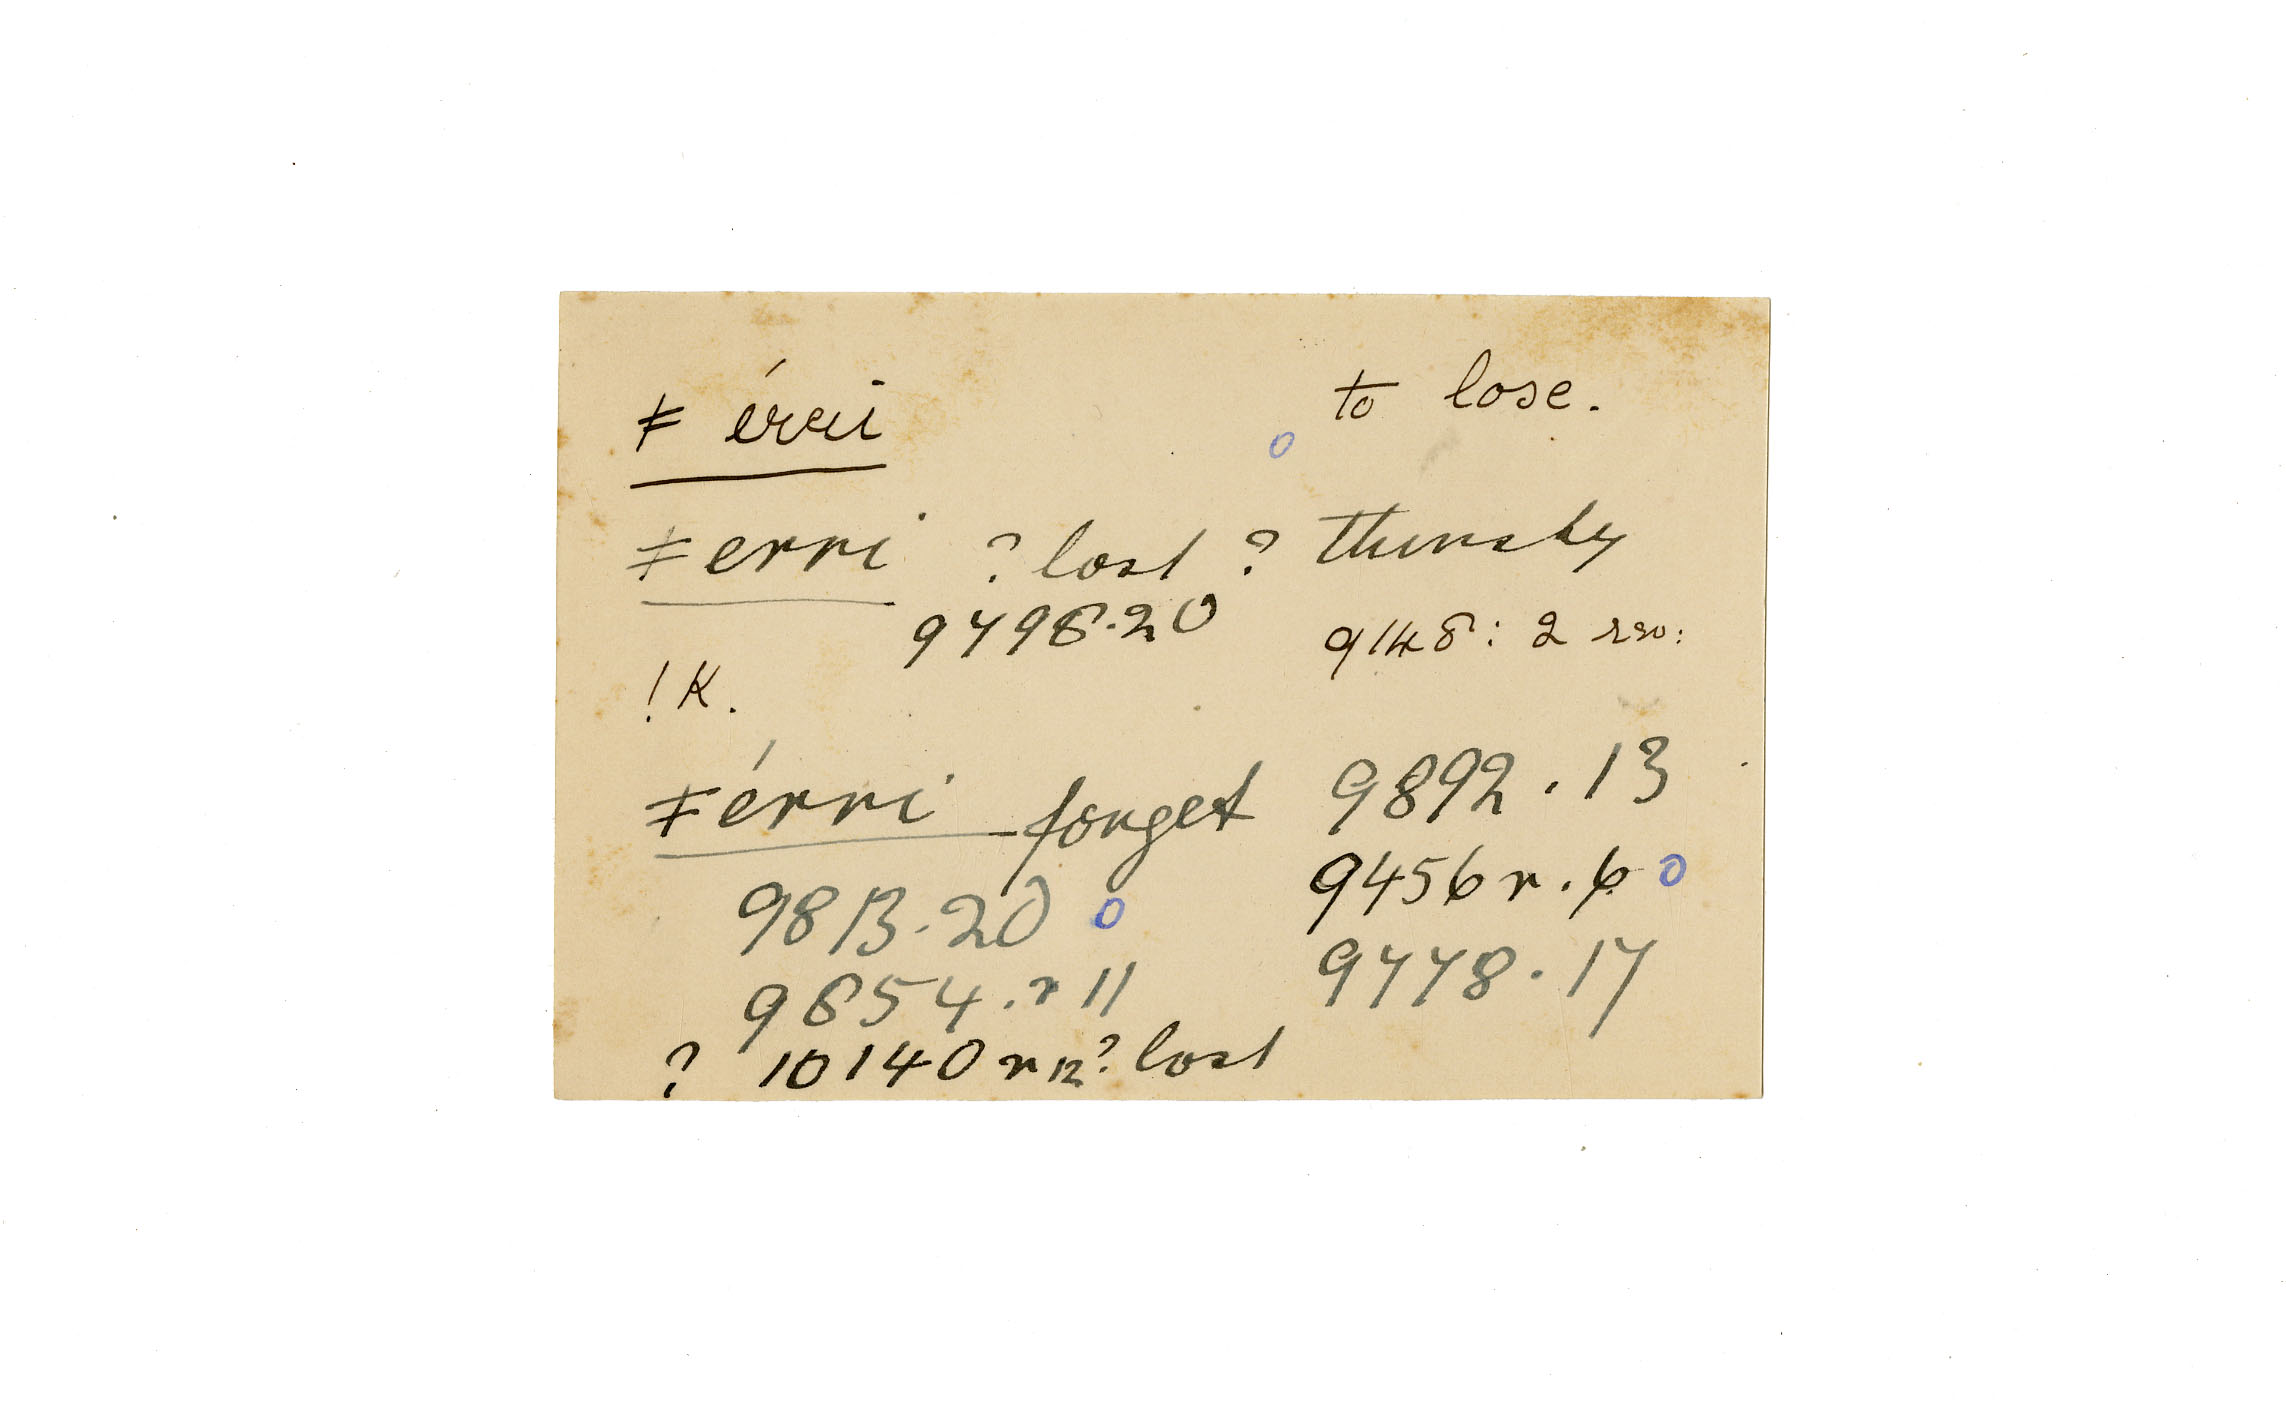 ǂ érri to lose.
o
ǂ erri ? lost ? thirsty
9798.20 9148: 2 rev:
! K.
ǂ érri forget 9892.13
9813.20 o 9456 r.6 o
9854.r 11 9778.17
? 10140 r 12 ? lost